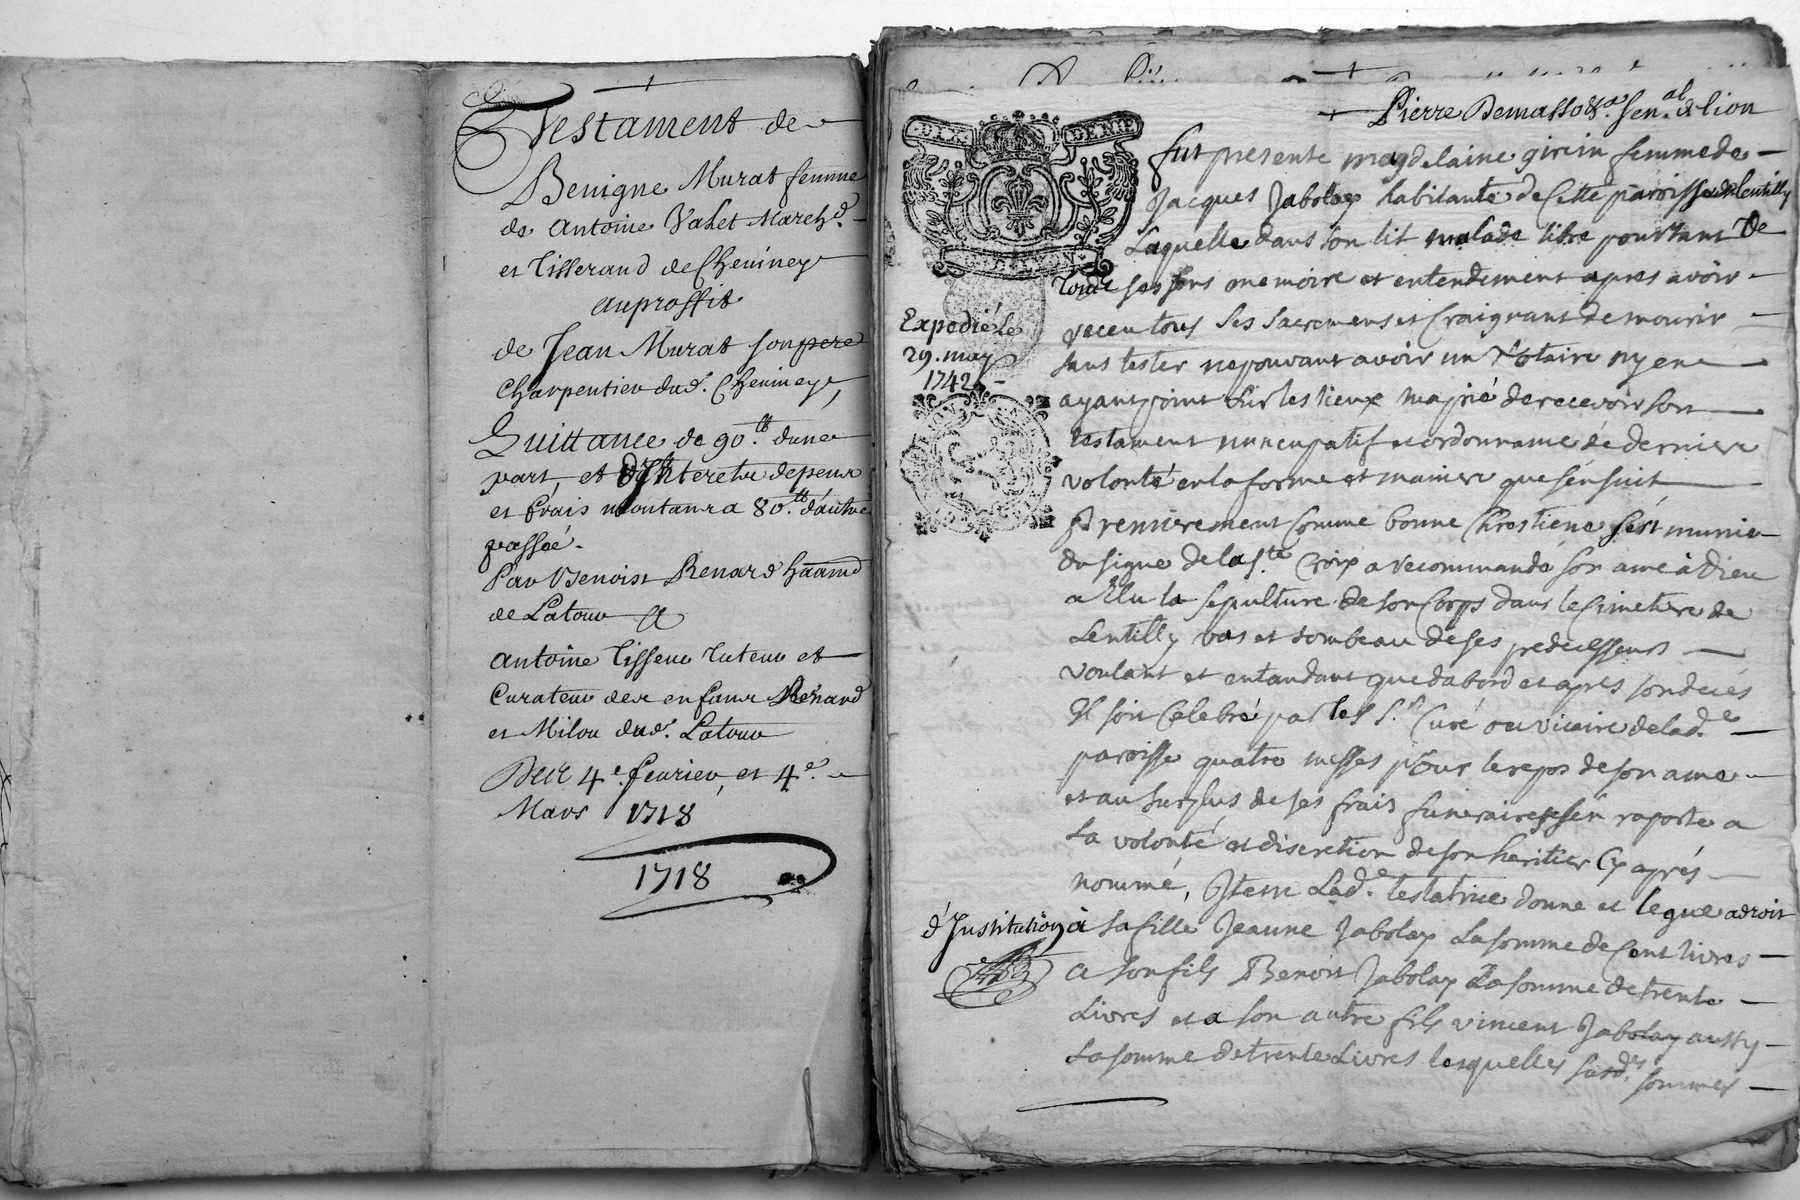 Testament de
Benigne Murat femme
de Antoine Valet March.d
et Tisserand de Cheviney
au proffit
de Jean Murat son pere
charpentier dud. Cheviney,
Quittance de 90.tt dune
part, et d'Interets depens
et frais montant a 80.tt d'autre
passée.
Par Benoist Renard
de Latour
Antoine Tisseur tuteur et
Curateur des enfans Renard
et Milou dud. Latour
Des 4.e fevrier, et 4.e
Mars 1718
1718
Pierre Demasso Sen.al de lion
DIX DENIE
fut presente magdelaine girin femme de
Jacques Jabolay habitante de Cette paroisse de lentilly
Laquelle dans son lit malade libre pourtant De
tous ses sens memoire et entendement apres avoir
receu tous ses sacremens et Craignant de mourir
sans tester ne pouvant avoir un Notaire ny en
ayant point sur les lieux m'a prié de recevoir son
testament nuncupatif et ordonnance de derniere
volonté en la forme et maniere que s'ensuit
Premierement Comme bonne Chrestiene s'est munie
du signe de la s.te Croix a recommandé son ame à Dieu
a Elu la sepulture de son Corps dans le Cimetiere de
Lentilly vas et tombeau de ses predecesseurs
voulant et entandant que dabord et apres son deces
Il soit Celebré par les S.r Curé ou vicaire de lad.e
paroisse quatre messes pour le repos de son ame
et au surplus de ses frais funeraires s'en raporte a
La volonté et discretion de son heritier Cy aprés
nommé, Item Lad.e testatrice donne et legue a droit
d'Institution à sa fille Jeanne Jabolay La somme de Cent livres
a son fils Benoit Jabolay La somme de trente
Livres et a son autre fils vincent Jabolay aussy
La somme de trente Livres lesquelles susd.es sommes
Expedié le
29. may
1742